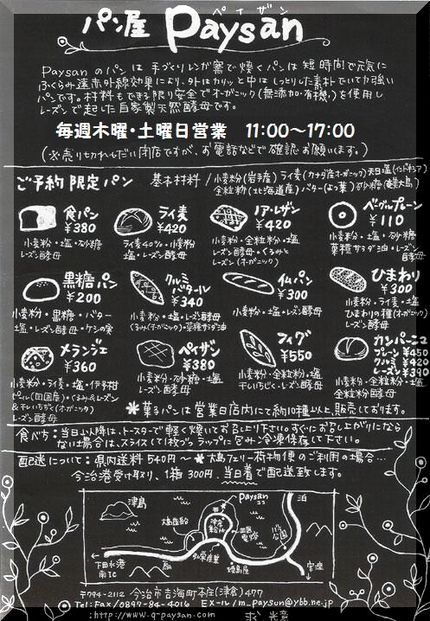 ペイザン
パン屋 Paysan
Paysan のパンは手づくりレンガ窯で焼くパンは短時間で元気に
ふくらみ遠赤外線効果により、外はカリッと中はしっとりした素朴でいて力強い
パンです。材料もできる限り安全でオーガニック(無添加・有機)を使用し
レーズンで起した自家製天然酵母です。
毎週木曜・土曜日営業 11:00〜17:00
(※売り切れしだい閉店ですが、お電話などで確認お願いします。)
ご予約限定パン 基本材料/小麦粉(岩手産)ライ麦(カナダ産オーガニック)天日塩(インドネシア)
全粒粉(北海道産)バター(よつ葉)砂糖(奄美大島)
食パン
¥380
小麦粉・塩・砂糖
レーズン酵母
ライ麦
¥420
ライ麦40%・小麦粉
塩・レーズン酵母
ノア・レザン
¥420
小麦粉・全粒粉・塩
レーズン酵母・くるみ
レーズン(オーガニック)
ベーグルプレーン
¥110
小麦粉・塩・砂糖
菜種サラダ油・レーズン
酵母
黒糖パン
¥200
小麦粉・黒糖・バター
塩・レーズン酵母・ケシの実
クルミ
バタール
¥340
小麦粉・塩・レーズン酵母
くるみ(オーガニック)・菜種サラダ油
イムパン
¥300
小麦粉・塩・レーズン酵母
ひまわり
¥300
小麦粉・ライ麦・塩
ひまわりの種(オーガニック)
レーズン酵母
メランジェ
¥360
小麦粉・ライ麦・塩・伊予柑
ピール(四国産)くるみ&レーズン
&干しいちじく(オーガニック)
レーズン酵母
ペイザン
¥380
小麦粉・砂糖・塩
レーズン酵母
フィグ
¥550
小麦粉・全粒粉・塩
干しいちじく・レーズン酵母
カンパーニュ
プレーン ¥450
クルミ ¥420
レーズン ¥390
小麦粉・全粒粉・塩
レーズン酵母
*菓子パンは営業日店内にて約10種以上、販売しております。
食べ方:当日以降は、トースターで軽く焼いてお召し上り下さい。すぐにお召し上がりになら
ない場合は、スライスして1枚づつラップに包み冷凍保存して下さい。
配送について:県内送料540円〜*大島フェリー荷物便のご利用の場合…
今治港受け取り、1箱300円、当日着で配送致します。
津島
Paysan
ココ
泊
大島
下田水港
南IC
宮窪
〒794-2112 今治市吉海町本庄(津倉)477
Tel:Fax/0897-84-4016 Eメール/m_paysan@ybb.ne.jp
http://www.g-paysan.com